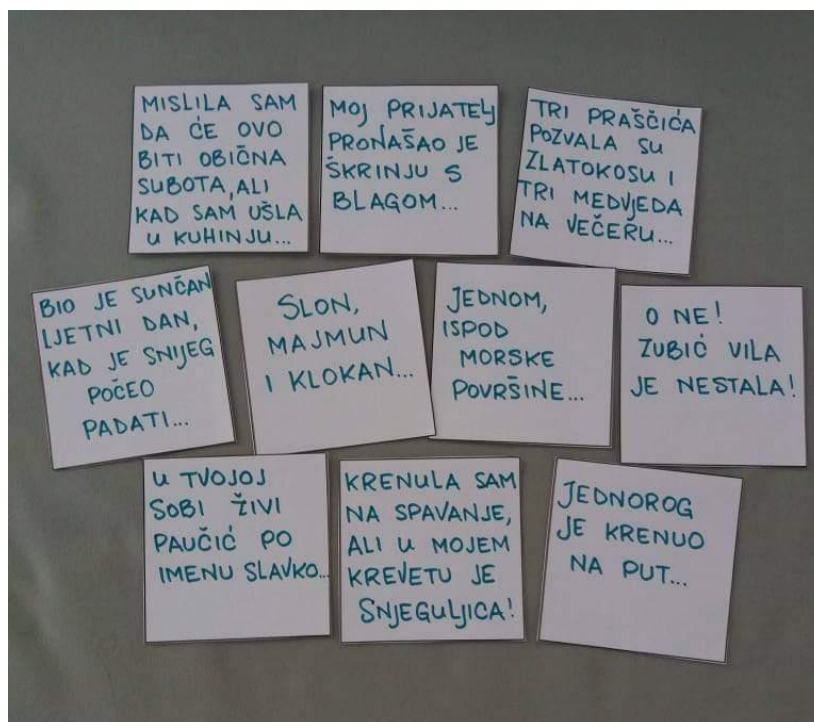 MISLILA SAM
DA ĆE OVO
BITI OBIČNA
SUBOTA, ALI
KAD SAM UŠLA
U KUHINJU...
MOJ PRIJATELJ
PRONAŠAO JE
ŠKRINJU S
BLAGOM...
TRI PRAŠČIĆA
POZVALA SU
ZLATOKOSU I
TRI MEDVJEDA
NA VEČERU...
BIO JE SUNČAN
LJETNI DAN,
KAD JE SNIJEG
POČEO
PADATI...
SLON,
MAJMUN
I KLOKAN...
JEDNOM,
ISPOD
MORSKE
POVRŠINE...
O NE!
ZUBIĆ VILA
JE NESTALA!
U TVOJOJ
SOBI ŽIVI
PAUČIĆ PO
IMENU SLAVKO...
KRENULA SAM
NA SPAVANJE,
ALI U MOJEM
KREVETU JE
SNJEGULJICA!
JEDNOROG
JE KRENUO
NA PUT...